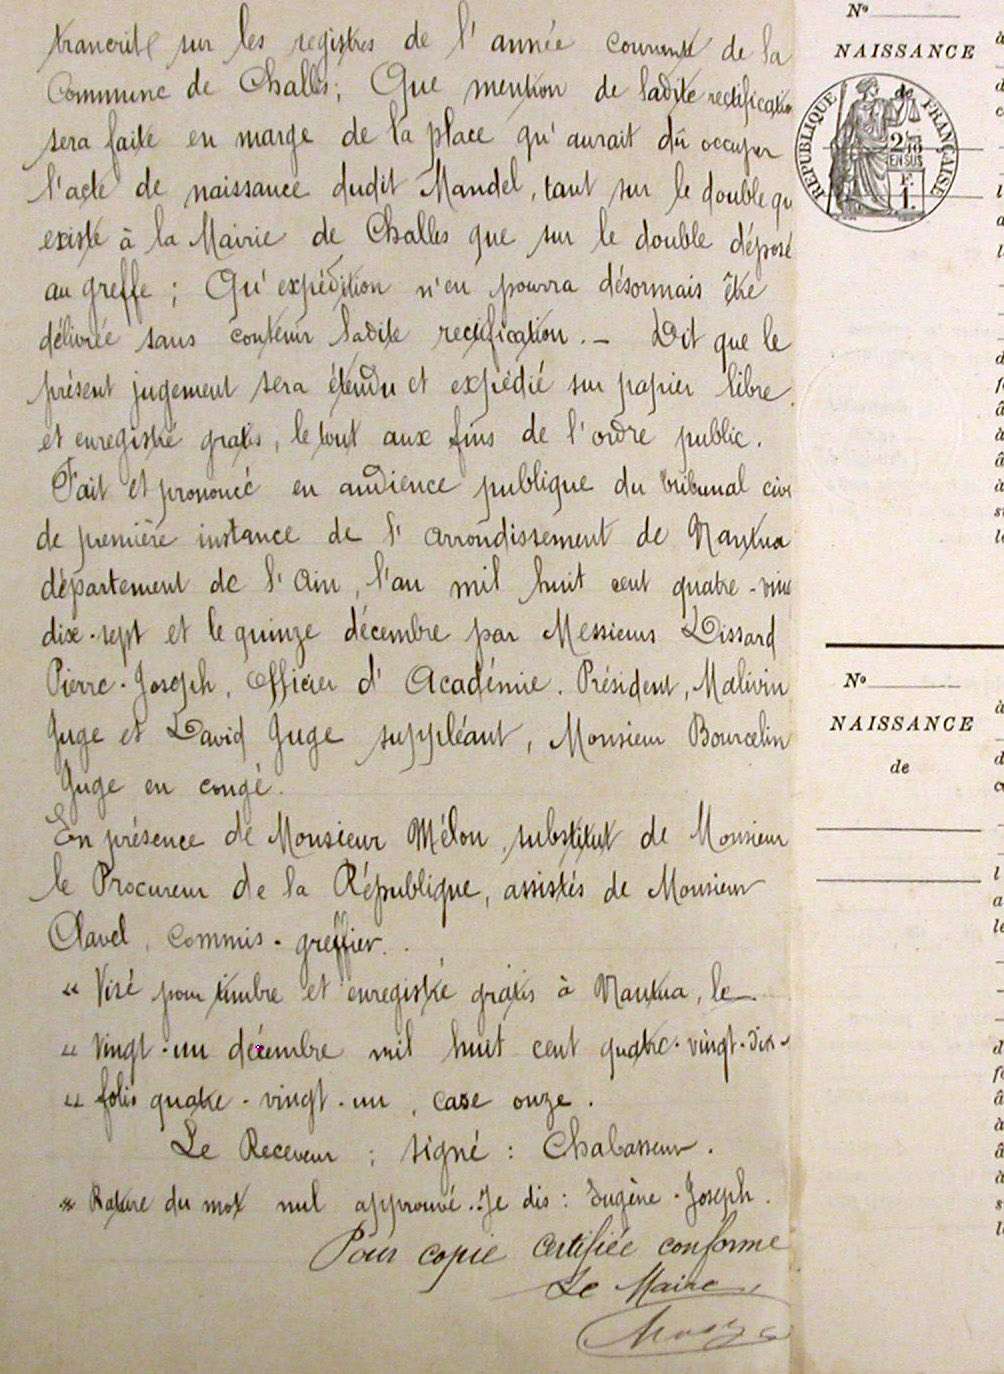 trancrit sur les registres de l'année courante de la
Commune de Challes; Que mention de ladite rectification
sera faite en marge de la place qu'aurait dû occuper
l'acte de naissance dudit Mandel, tant sur le double qu
existe à la Mairie de Challes que sur le double déposé
au greffe; Qu'expédition n'en pourra désormais être
délivrée sans contenir ladite rectification. - Dit que le
présent jugement sera étendu et expédié sur papier libre
et enregistré gratis, le tout aux fins de l'ordre public.
Fait et prononcé en audience publique du tribunal civi
de première instance de l'arrondissement de Nantua
département de l'Ain, l'an mil huit cent quatre-vin
dix-sept et le quinze décembre par Messieurs Dissard
Pierre-Joseph, Officier d'Académie. Président, Malivin
Juge et David Juge suppléant, Monsieur Bourcelin
Juge en congé.
En présence de Monsieur Mélon, substitut de Monsieur
le Procureur de la République, assistés de Monsieur
Clavel, commis-greffier.
" Visé pour timbre et enregistré gratis à Nantua, le
" Vingt-un décembre mil huit cent quatre-vingt-dix-
" folio quatre-vingt-un, case onze.
Le Receveur; signé: Chabasseur.
" Rature du mot nul approuvé. Je dis: Eugène-Joseph.
Pour copie certifiée conforme
Le Maire,
Nº
NAISSANCE
de
RÉPUBLIQUE FRANÇAISE
2/10
EN SUS
1 F.
Nº
NAISSANCE
de